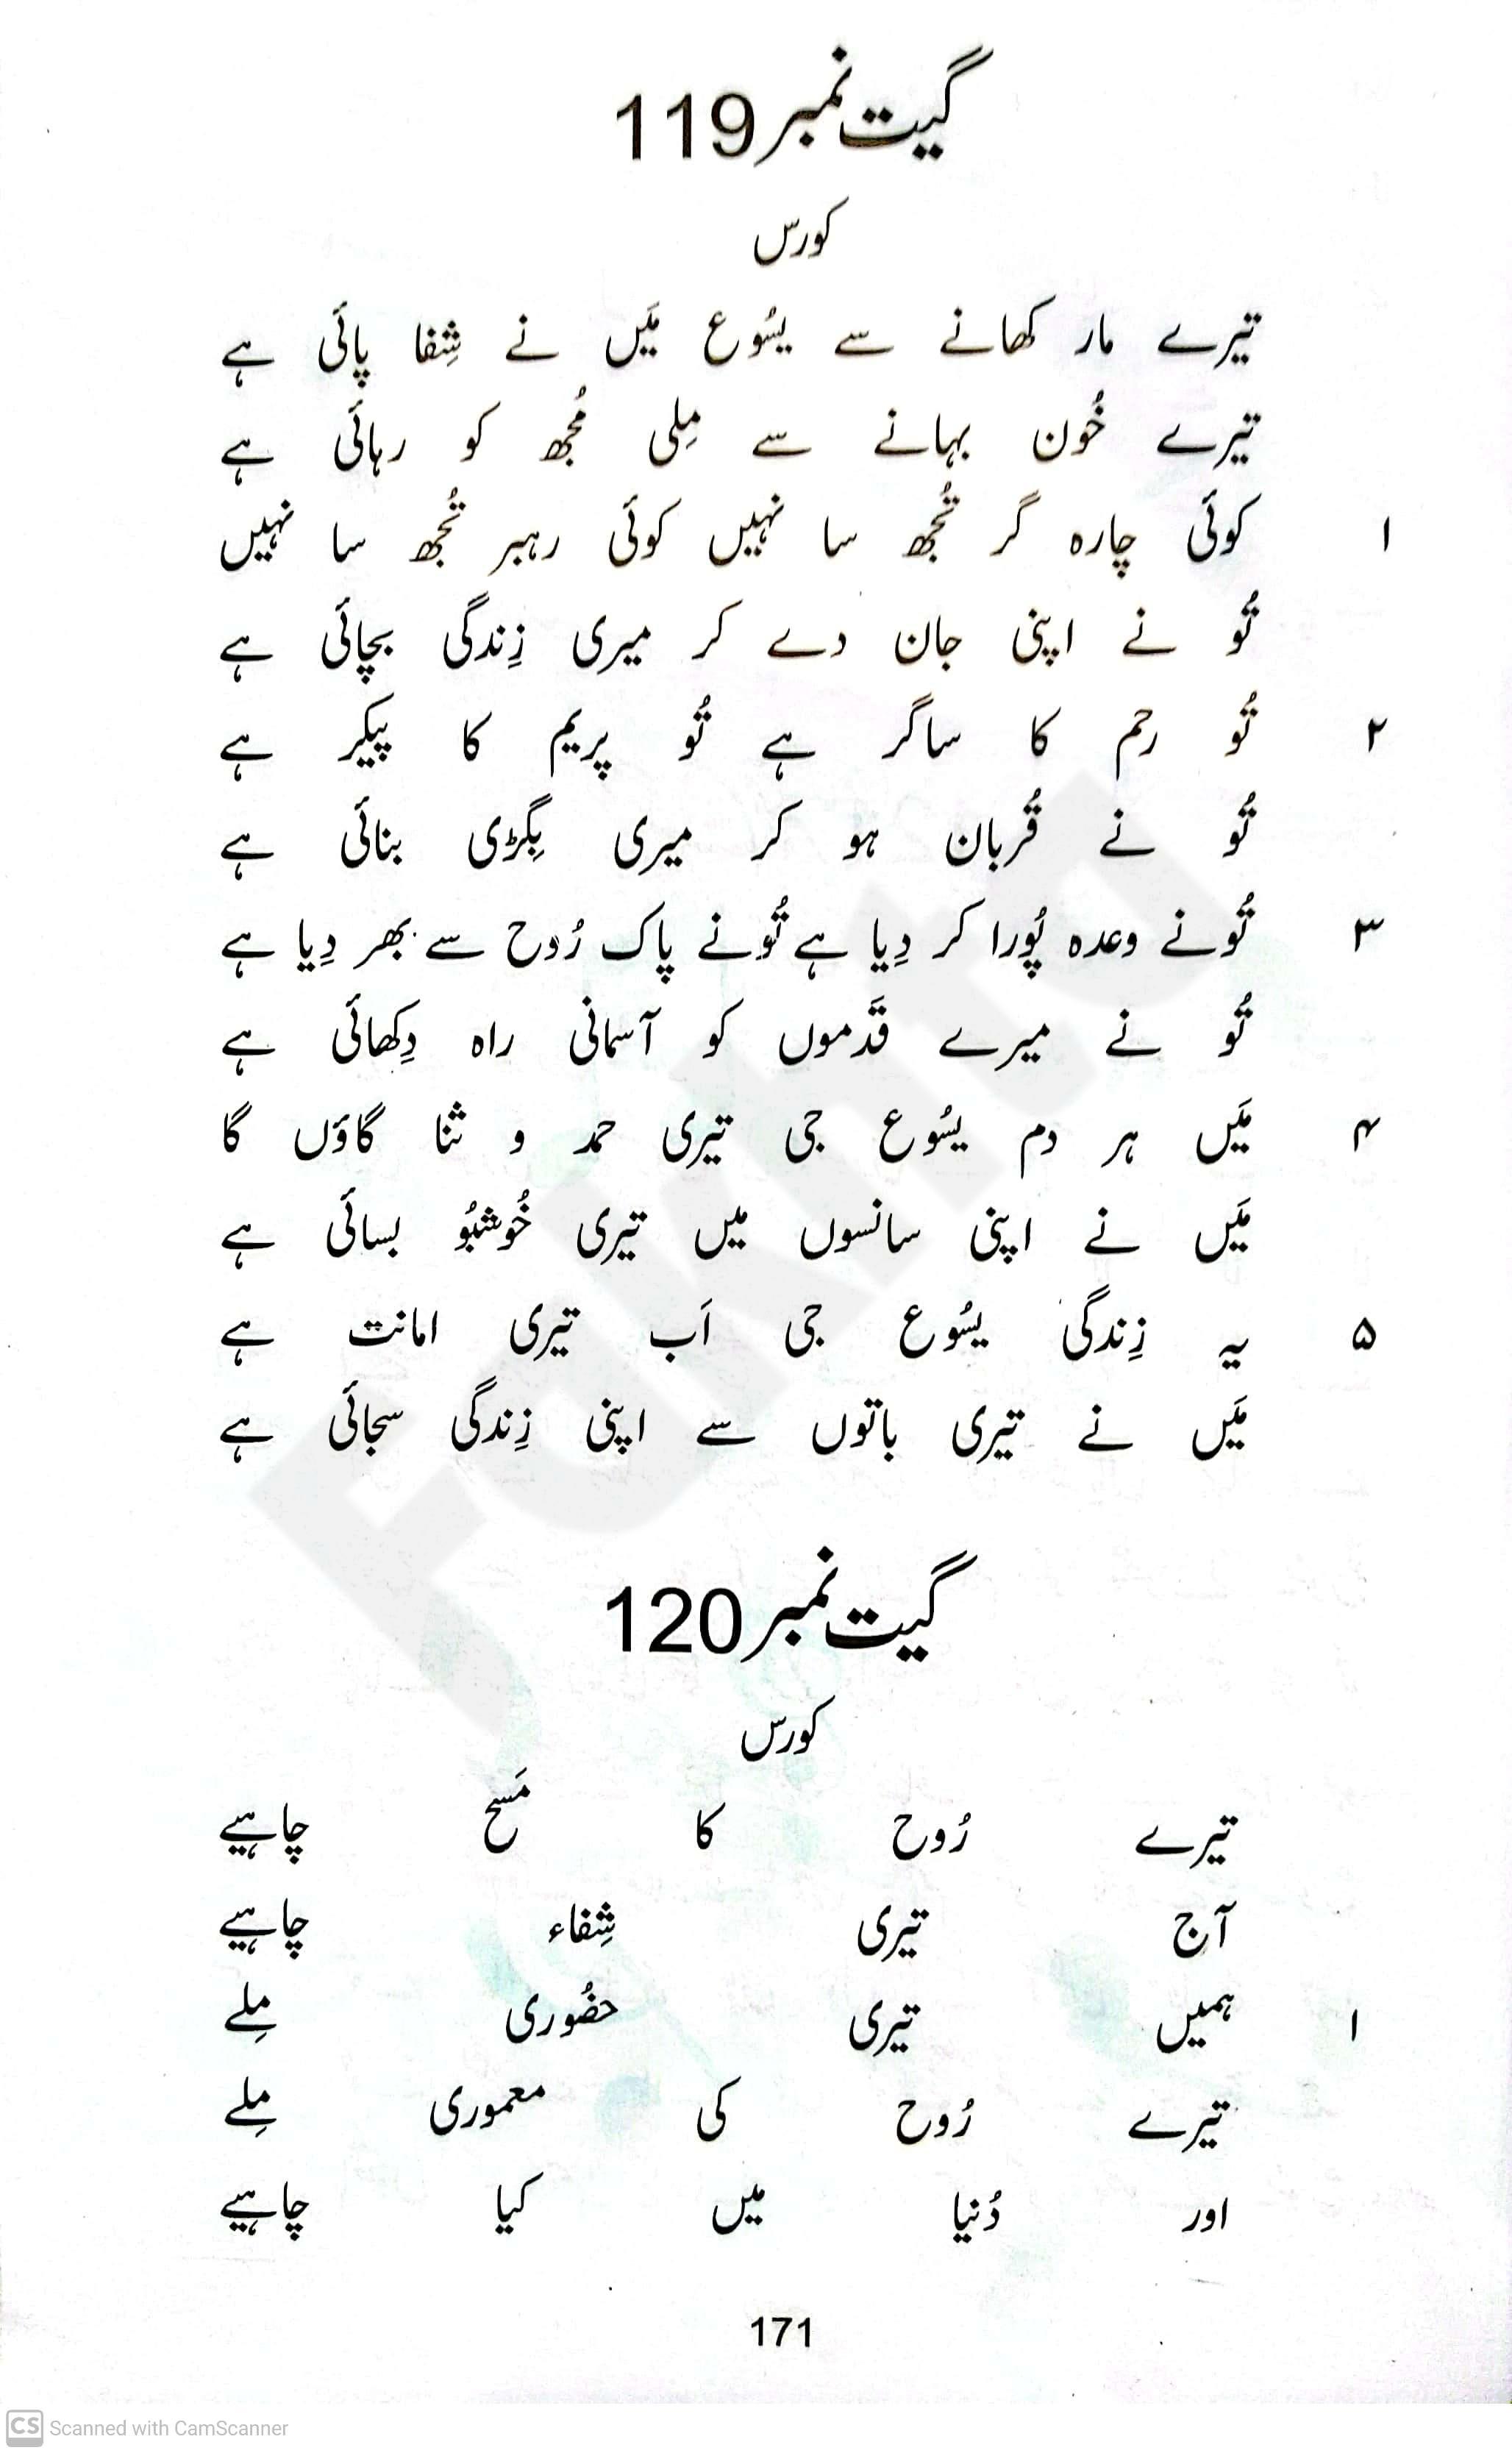 گیت نمبر 119
کورس
تیرے مار کھانے سے یسُوع مَیں نے شِفا پائی ہے
تیرے خُون بہانے سے مِلی مُجھ کو رہائی ہے
۱ کوئی چارہ گر تُجھ سا نہیں کوئی رہبر تُجھ سا نہیں
تُو نے اپنی جان دے کر میری زِندگی بچائی ہے
۲ تُو رحم کا ساگر ہے تُو پریم کا پیکر ہے
تُو نے قُربان ہو کر میری بِگڑی بنائی ہے
۳ تُونے وعدہ پُورا کر دِیا ہے تُونے پاک رُوح سے بھر دِیا ہے
تُو نے میرے قَدموں کو آسمانی راہ دِکھائی ہے
۴ مَیں ہر دم یسُوع جی تیری حمد و ثنا گاؤں گا
مَیں نے اپنی سانسوں میں تیری خُوشبُو بسائی ہے
۵ یہ زِندگی یسُوع جی اَب تیری امانت ہے
مَیں نے تیری باتوں سے اپنی زِندگی سجائی ہے
گیت نمبر 120
کورس
تیرے رُوح کا مَسح چاہیے
آج تیری شِفاء چاہیے
۱ ہمیں تیری حضُوری مِلے
تیرے رُوح کی معموری مِلے
اور دُنیا میں کیا چاہیے
171
Fakhta
CS Scanned with CamScanner